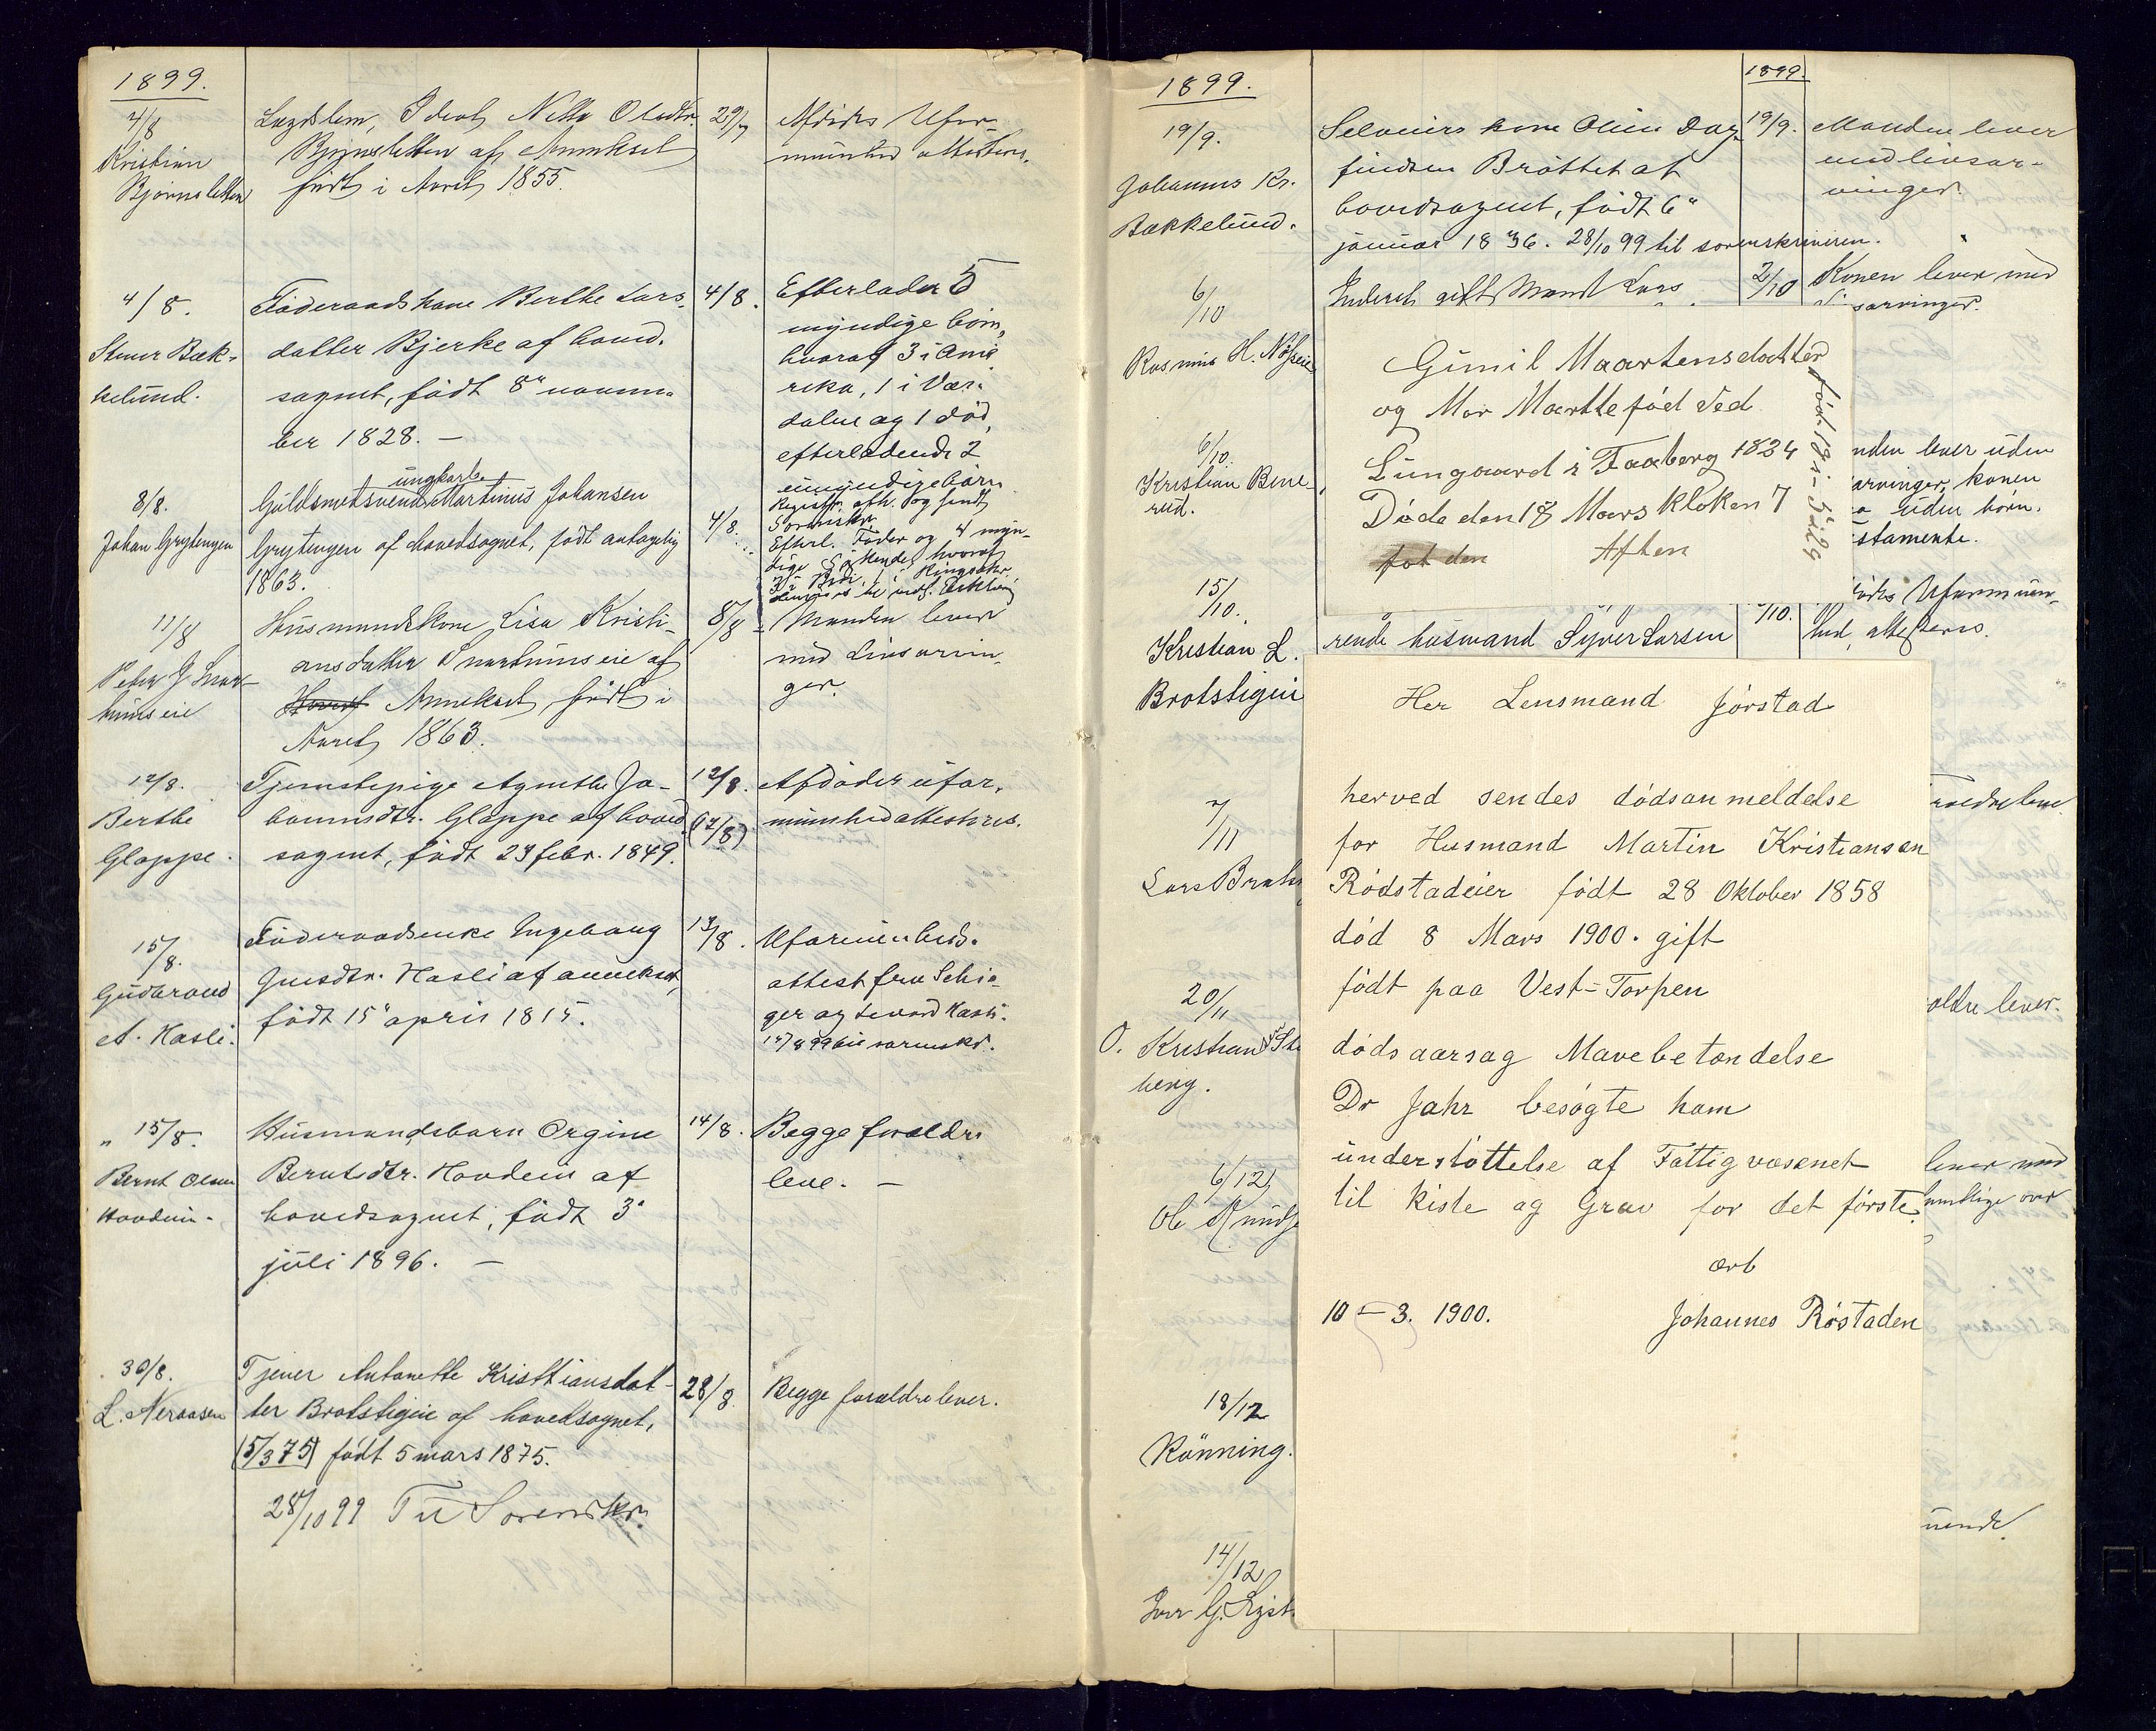 1899.
4/8
Kristian
Bjørnsletten
Lægdslem, Idiot, Nella Olsdtr.
Bjørnsletten af Annekset
født i Aaret 1855.
29/7
Afdødes Ufor-
muenhed attesteres.
4/8.
Stener Bæk-
kelund.
Föderaadskone Berthe Lars-
datter Bjerke af hoved-
sognet, födt 8" novem-
ber 1828. —
4/8.
Efterlader 5
myndige börn,
hvoraf 3 i Ame-
rika, 1 i Vær-
dalen og 1 död,
efterladende 2
umyndige börn
8/8.
Johan Grytengen
ungkarl
Guldsmedsvend Martinus Johansen
Grytengen af Hovedsognet, født antagelig
1863.
4/8.
Registr. afh. og sendt
Sorenskr.
Efterl. Fader og 4 myn-
dige Søskende, hvoraf
11/8
Peter J. Smør-
huusseie
Husmandskone Lisa Kristi-
ansdatter Smørhuuseie af
Hoved Annekset født i
Aaret 1863.
8/8
Manden lever
med Livsarvin-
ger.
12/8.
Berthe
Gloppe.
Tjenestepige Agnethe Jo-
hannesdtr. Gloppe af hoved
sognet, födt 23 febr. 1849.
12/8.
(7/8)
Afdödes ufor-
muenhed attesteres.
15/8.
Gudbrand
A. Hasli.
Föderaadsenke Ingeborg
Jensdtr. Hasli af annekset,
födt 15" april 1815.
13/8.
Uformuenheds-
attest fra Schie-
ger og Sevard Hasli.
17/8 99 til sorenskr.
" 15/8.
Bernt Olsen
Hovdein.
Husmandsbarn Orgine
Berntsdtr. Hovdein af
hovedsognet, födt 3"
juli 1896. —
14/8.
Begge forældre
leve. —
30/8.
L. Neraasen
Tjener Antonette Kristiansdat-
ter Brotstigen af hovedsognet,
(5/3 75) født 5 mars 1875.
28/10 99 Til Sorenskr.
28/8
Begge forældre lever.
1899.
1899.
19/9.
Johannes Kr.
Bækkelund.
Seloveiers kone Oline Dag-
findsen Bråttet af
hovedsognet, födt 6"
januar 1836. 28/10 99 til sorenskriveren.
19/9.
Manden lever
med livsar-
vinger.
6/10
Rasmus H. Nøsseie
Inderst gift Mand Lars
2/10
Konen lever med
Livsarvinger.
Gunil Maartensdatter
og Mor Marthe fød Ved
Lungaard i Faaberg 1824
Døde den 18 Mars kloken 7
fot den Aften
6/10.
Kristian Bene-
rud.
nden lever uden
arvinger, konen
uden børn.
stamente.
15/10.
Kristian L.
Brotstigen
rende husmand Syver Larsen
/10.
ødes Uformuen-
hed attesteres.
Her Lensmand Jørstad
herved sendes dødsanmeldelse
for Husmand Martin Kristiansen
Rødstadeier født 28 Oktober 1858
død 8 Mars 1900. gift
født paa Vest-Torpen
dødsaarsag Mavebetændelse
Dr Jahr besøgte ham
understøttelse af Fattigvæsenet
til kiste og Grav for det første.
ærb
10 – 3. 1900. Johannes Røstaden
7/11
Lars Bruh
ældre leve.
20/11
O. Kristian St
berg.
ældre lever.
6/12
Ole Knuds
lever med
18/12
Rönning.
14/12
Iver G. Lyst
uende.